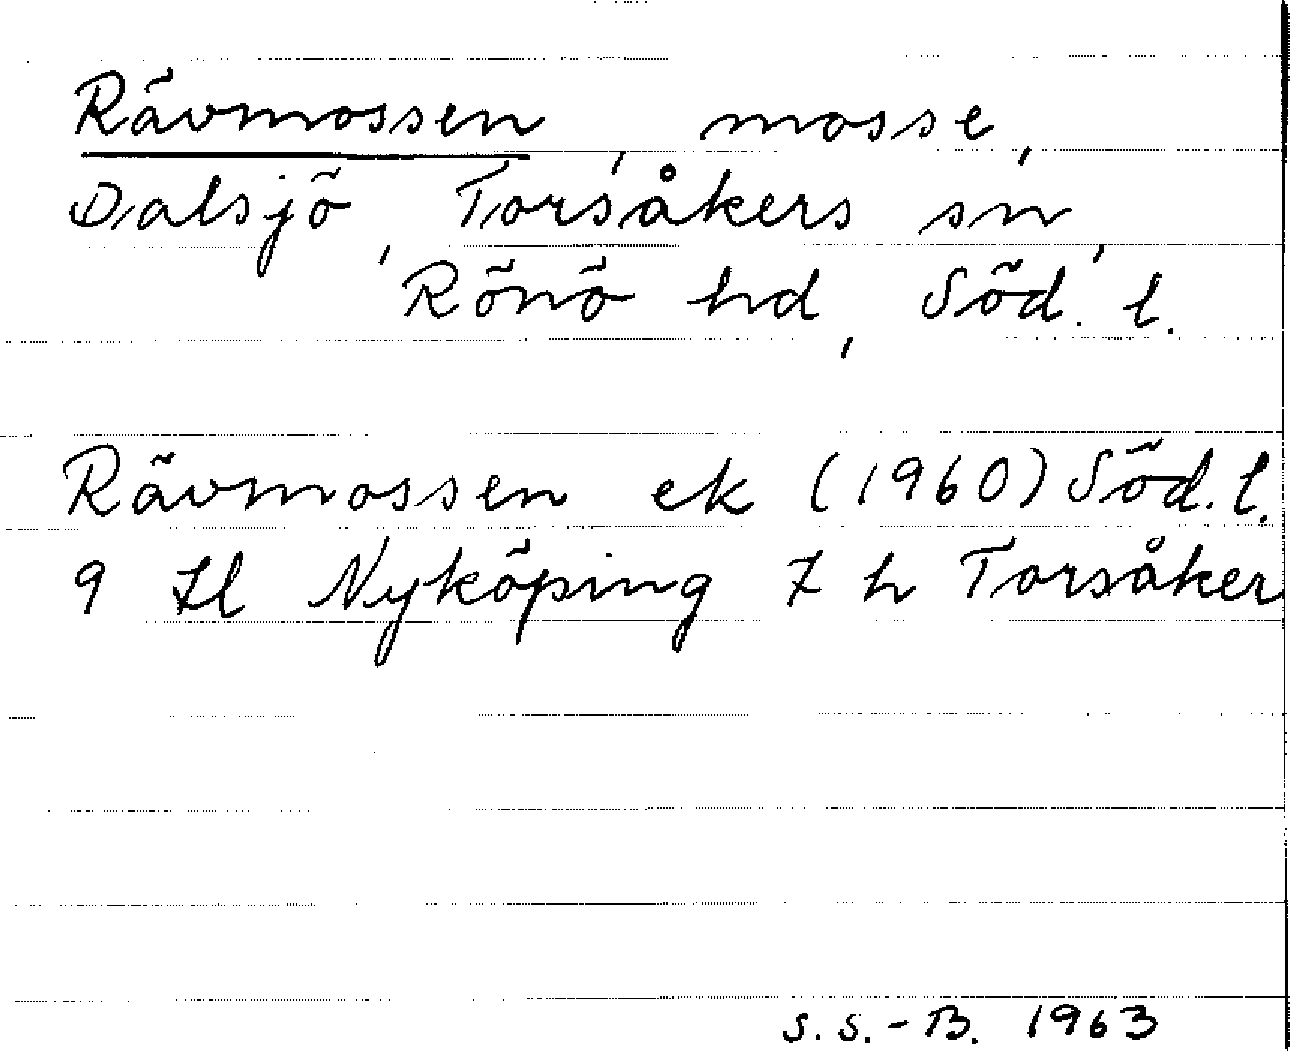 Rävmossen, mosse,
Dalsjö, Torsåkers sn,
Rönö hd, Söd. l.
Rävmossen ek (1960) Söd. l.
9 Hl Nyköping 7 h Torsåker
S. S.-B. 1963